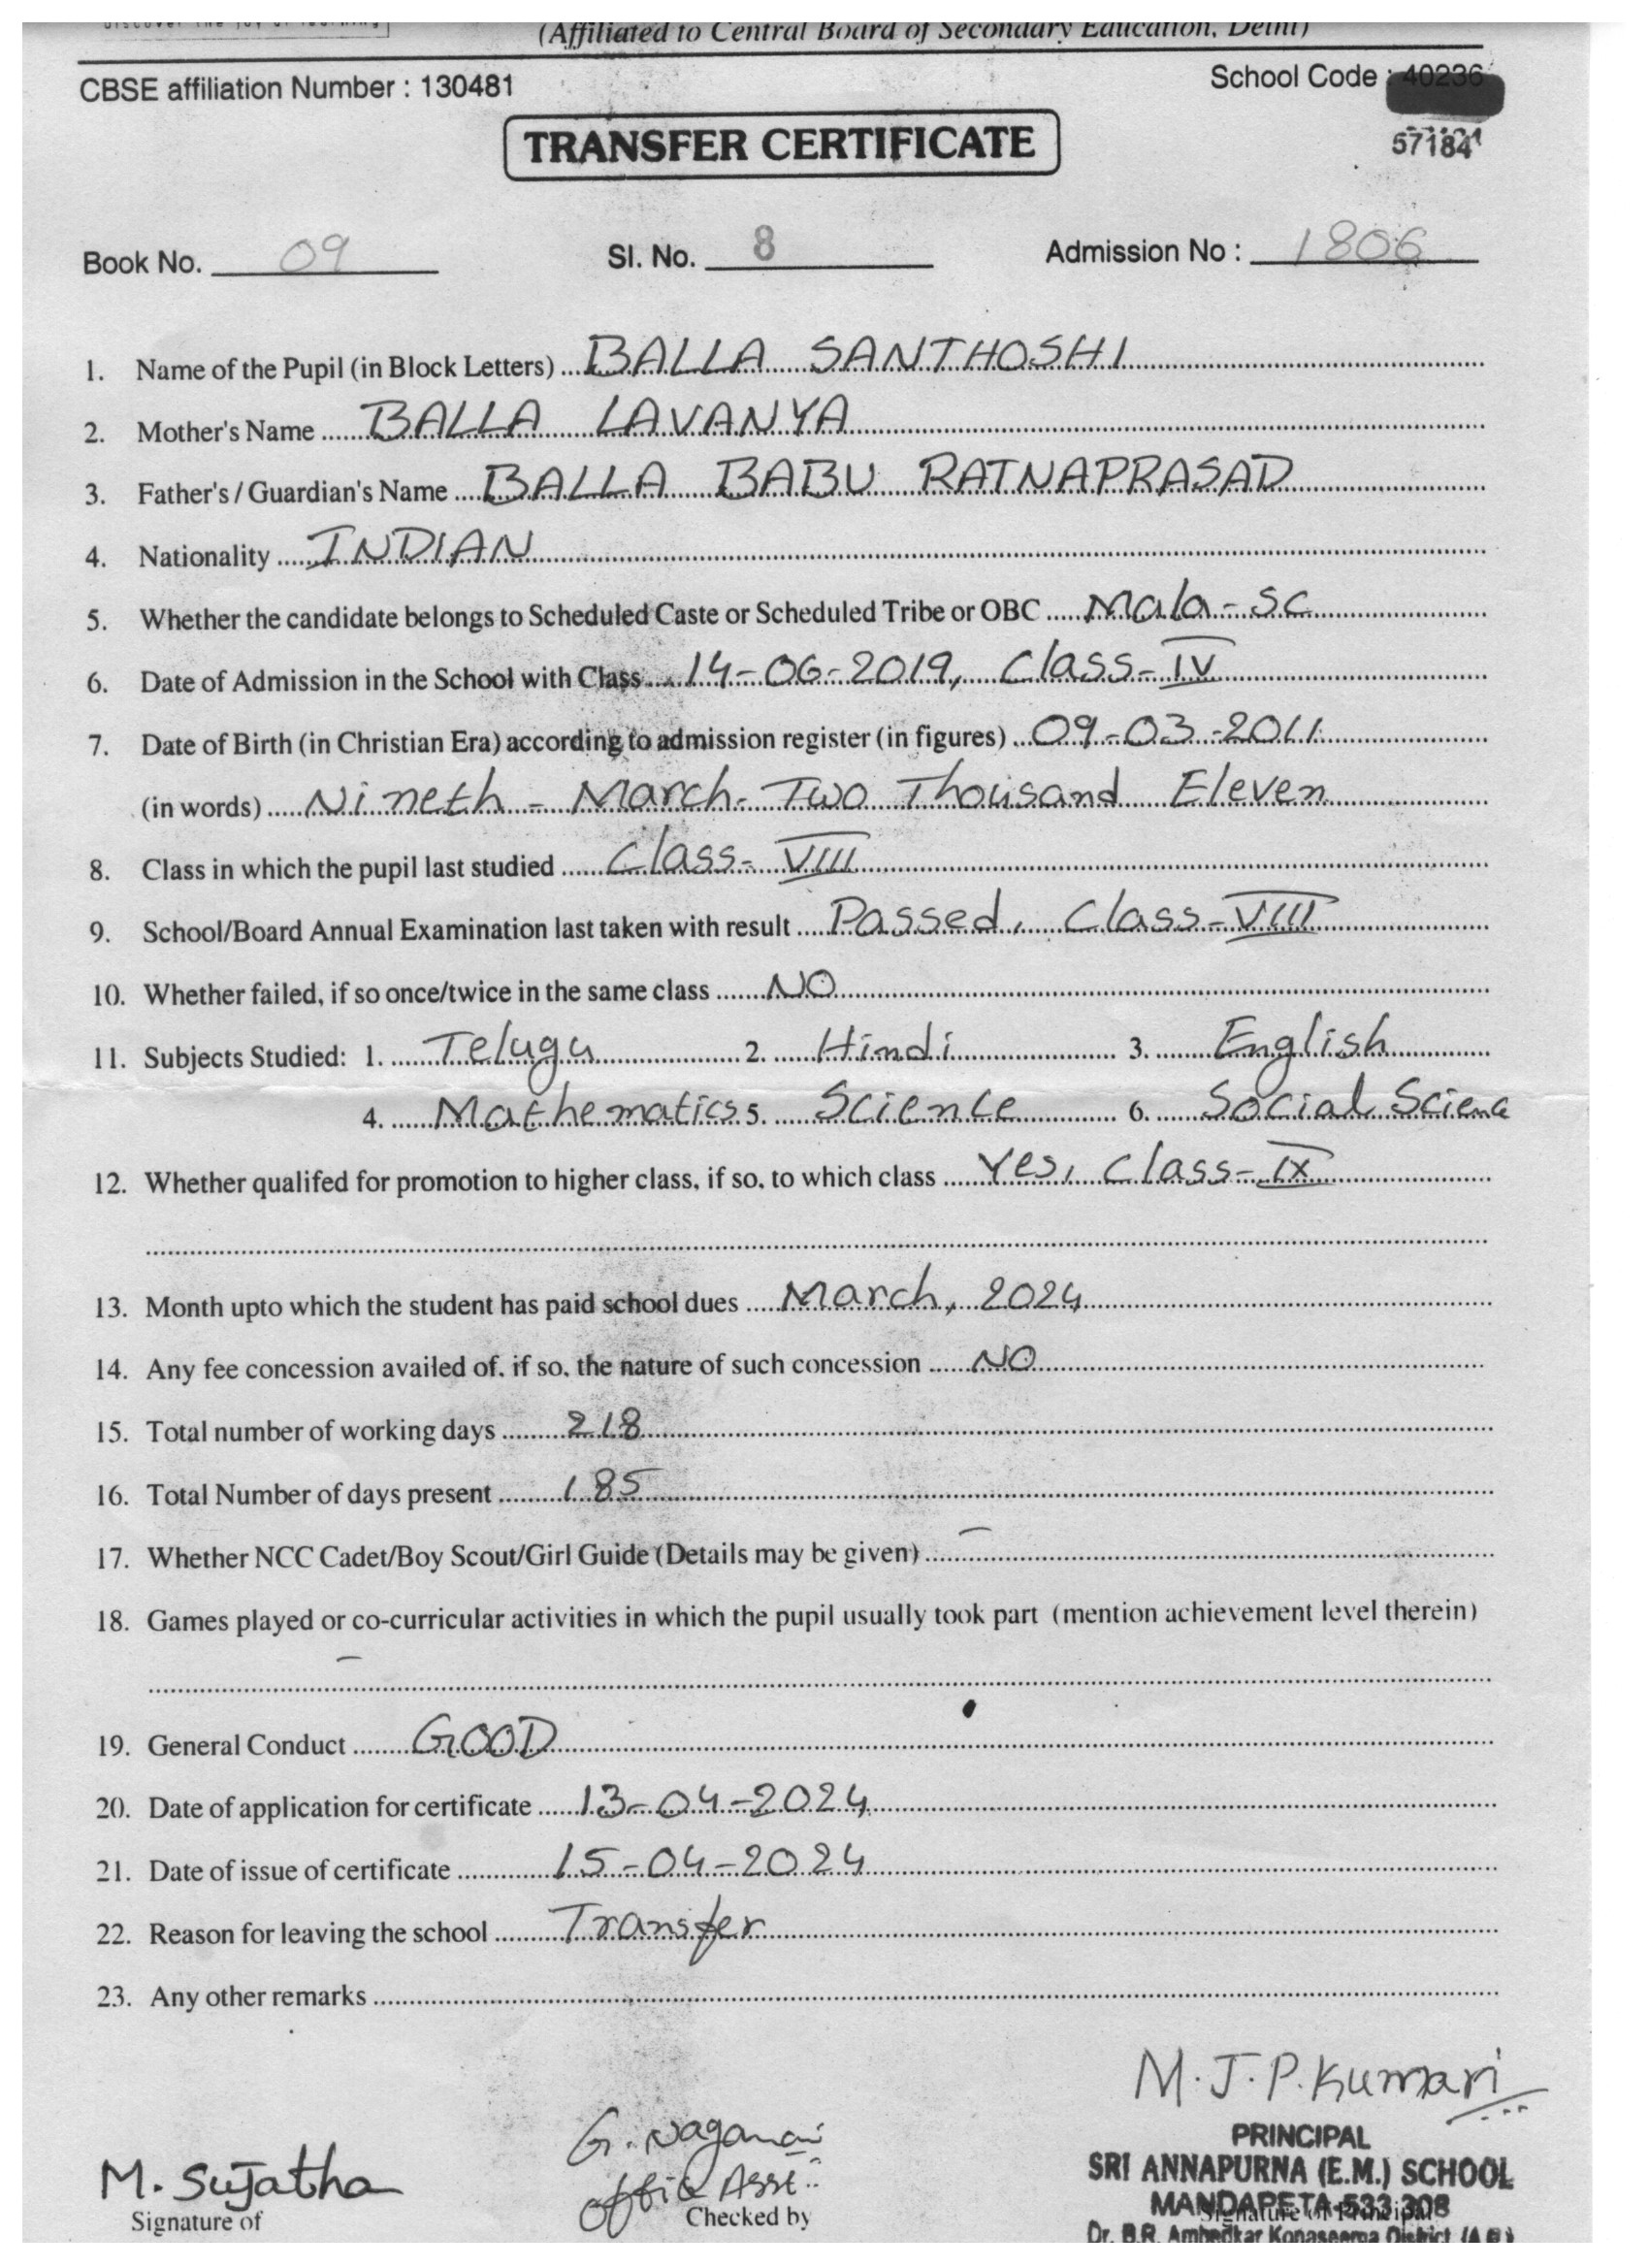 Discover the joy of learning
(Affiliated to Central Board of Secondary Education, Delhi)
CBSE affiliation Number : 130481 School Code : 40236
57184
TRANSFER CERTIFICATE
Book No. 09 Sl. No. 8 Admission No : 1806
1. Name of the Pupil (in Block Letters) BALLA SANTHOSHI
2. Mother's Name BALLA LAVANYA
3. Father's / Guardian's Name BALLA BABU RATNAPRASAD
4. Nationality INDIAN
5. Whether the candidate belongs to Scheduled Caste or Scheduled Tribe or OBC Mala - SC
6. Date of Admission in the School with Class 14-06-2019, Class-IV
7. Date of Birth (in Christian Era) according to admission register (in figures) 09-03-2011
(in words) Nineth - March - Two Thousand Eleven
8. Class in which the pupil last studied Class- VIII
9. School/Board Annual Examination last taken with result Passed, Class-VIII
10. Whether failed, if so once/twice in the same class NO
11. Subjects Studied: 1. Telugu 2. Hindi 3. English
4. Mathematics 5. Science 6. Social Science
12. Whether qualifed for promotion to higher class, if so, to which class Yes, Class-IX
13. Month upto which the student has paid school dues March, 2024
14. Any fee concession availed of, if so, the nature of such concession NO
15. Total number of working days 218
16. Total Number of days present 185
17. Whether NCC Cadet/Boy Scout/Girl Guide (Details may be given) —
18. Games played or co-curricular activities in which the pupil usually took part (mention achievement level therein)
—
19. General Conduct GOOD
20. Date of application for certificate 13-04-2024
21. Date of issue of certificate 15-04-2024
22. Reason for leaving the school Transfer
23. Any other remarks
M. Sujatha
Signature of
G.
Office Asst
Checked by
M.J.P.Kumari
PRINCIPAL
SRI ANNAPURNA (E.M.) SCHOOL
MANDAPETA-533 308
Signature of Principal
Dr. B.R. Ambedkar Konaseema District (A.P.)